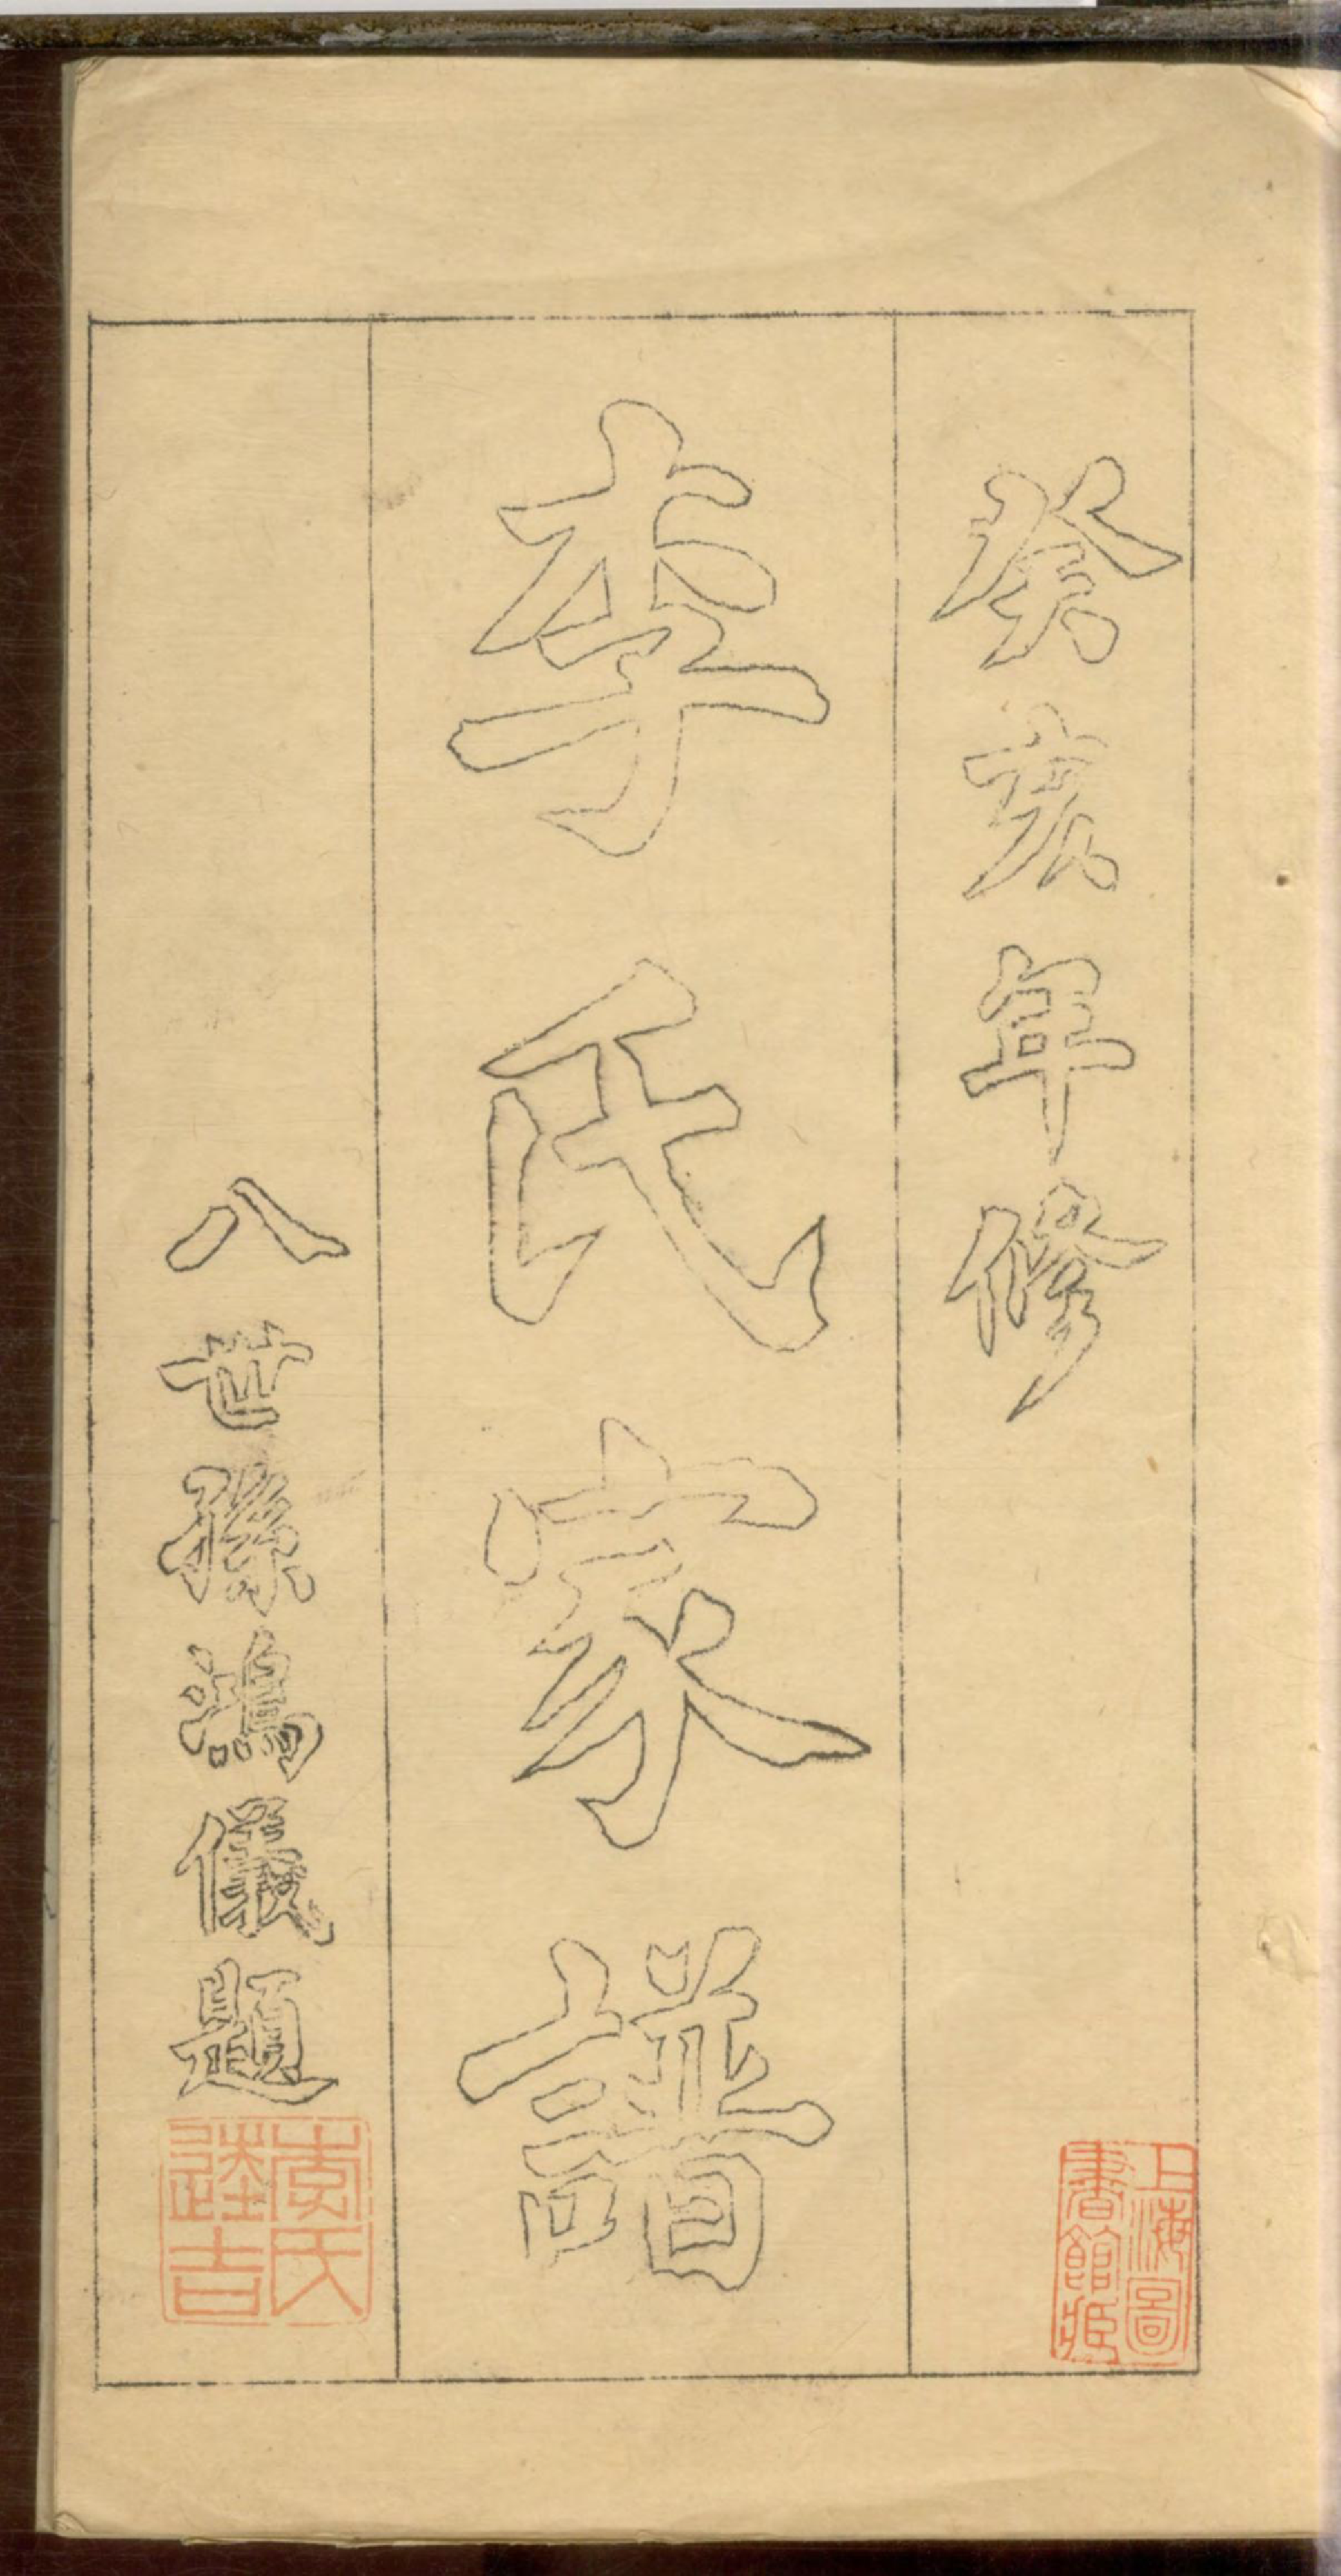 癸亥年修
李氏家譜
八世孫鴻儀題
李氏
吉
上海圖
書館藏